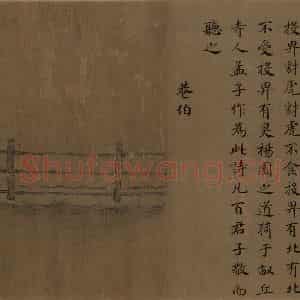 投畀豺虎豺虎不食投畀有北有北
不受投畀有昊楊園之道猗于畝丘
寺人孟子作為此詩凡百君子敬而
聽之
巷伯
Shufawang.CN